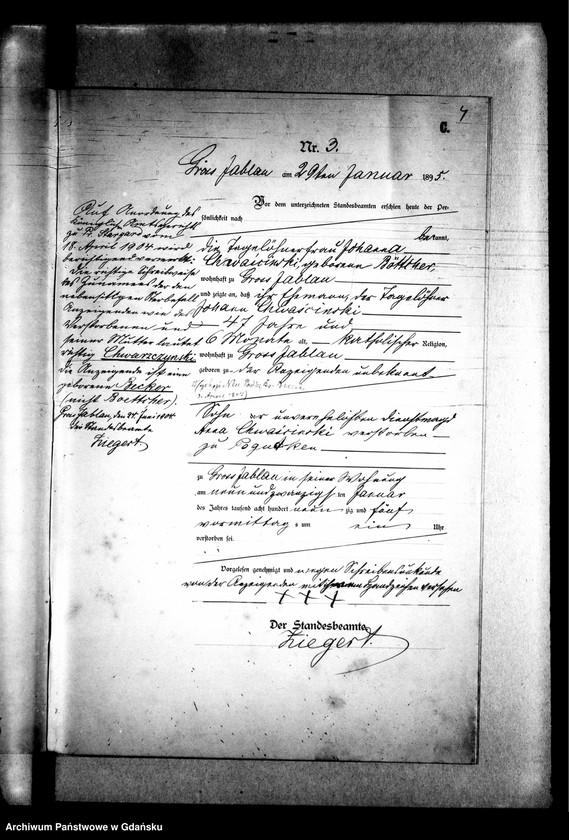 4
C.
Nr. 3.
Gross Jablau am 29ten Januar 1895.
Vor dem unterzeichneten Standesbeamten erschien heute der Per-
sönlichkeit nach
bekannt,
die Tagelöhnerfrau Johanna
Chwaiscinski, geborene Böttcher,
wohnhaft zu Gross Jablau
und zeigte an, daß ihr Ehemann, der Tagelöhner
Johann Chwaiscinski
47 Jahre und
6 Monate alt, katholischer Religion,
wohnhaft zu Gross Jablau
geboren zu der Anzeigenden unbekannt
Sohn der unverehelichten Dienstmagd
Anna Chwaiscinski verstorben
zu Pogutken
zu Gross Jablau in seiner Wohnung
am neunundzwanzigsten Januar
des Jahres tausend acht hundert neunzig und fünf
vormittags um ein Uhr
verstorben sei.
Vorgelesen, genehmigt und wegen Schreibensunkunde
von der Anzeigenden mit Handzeichen versehen
+ + +
Der Standesbeamte.
Ziegert.
Auf Anordnung des
Königlichen Amtsgerichts
zu Pr. Stargard vom
18. April 1904 wird
berichtigend vermerkt:
Die richtige Schreibweise
des Zunamens der den
nebenseitigen Sterbefall
Anzeigenden wie des
Verstorbenen und
seiner Mutter lautet
richtig Chwarszczynski
die Anzeigende ist eine
geborene Becker
(nicht Boettcher).
Gross Jablau, den Juni 1904
Der Standesbeamte
Ziegert
Archiwum Państwowe w Gdańsku